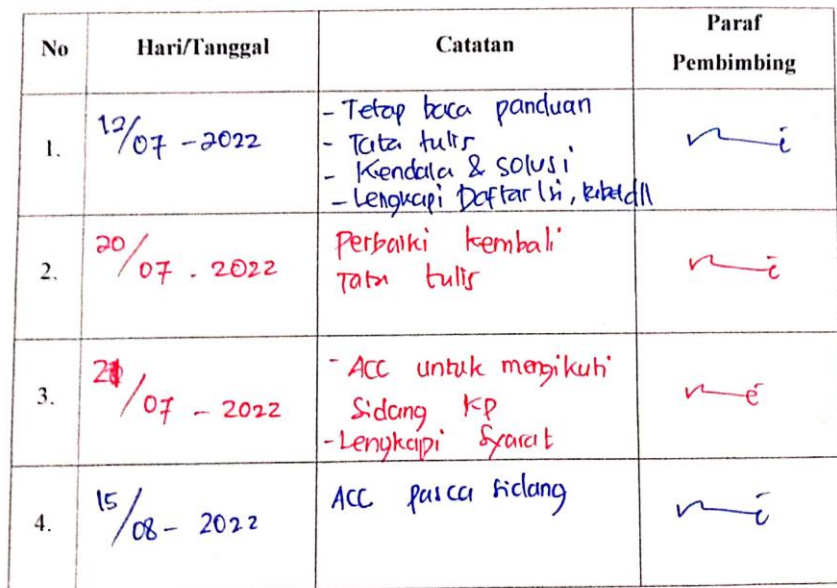 No Hari/Tanggal Catatan Paraf
Pembimbing
1. 12/07 - 2022 - Tetap baca panduan
- Tata tulis
- Kendala & solusi
- Lengkapi Daftar Isi, dll
2. 20/07 . 2022 Perbaiki kembali
Tata tulis
3. /07 - 2022 - ACC untuk mengikuti
Sidang KP
- Lengkapi Syarat
4. 15/08 - 2022 ACC pasca sidang